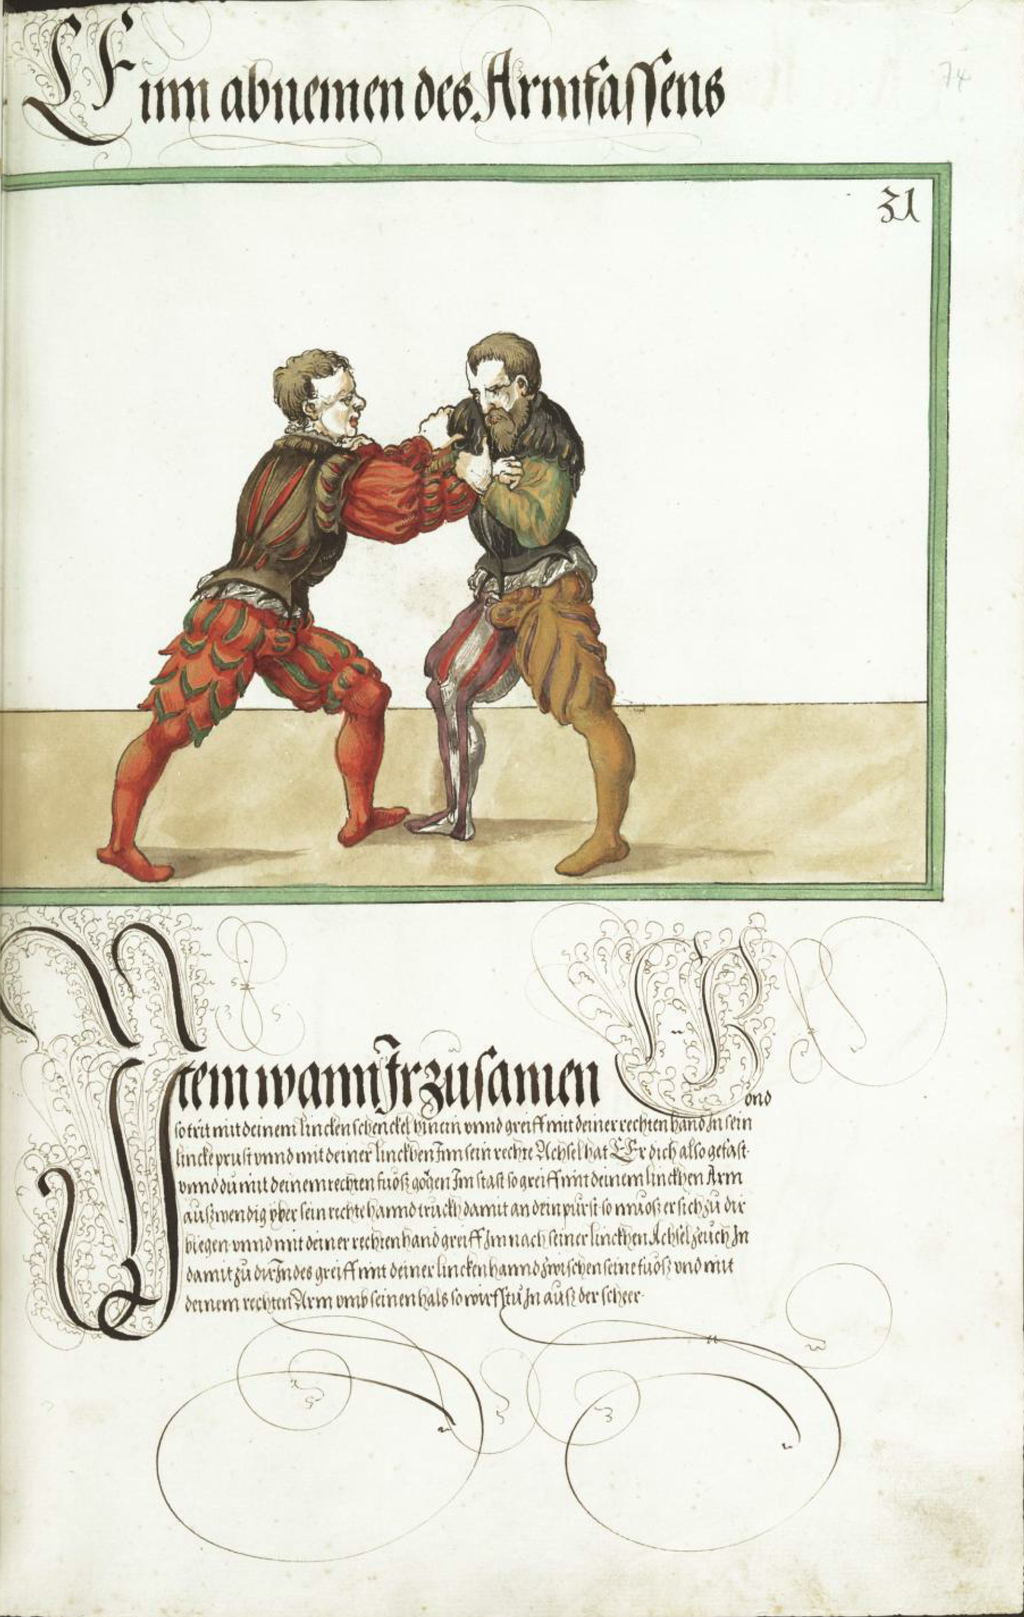 Einn abnemen des Armfassens
74
31
Item wann Ir zusamen kond
so trit mit deinem lincken schenckel hinein vnnd greiff mit deiner rechten hand In sein
lincke prust vnnd mit deiner linckhen Inn sein rechte Achsel hat Er dich also gefast
vnnd du mit deinem rechten fuosz gögen Im stast so greiff mit deinem linckhen Arm
auszwendig yber sein rechte hannd truckh damit an dein prust so muosz er sich zu dir
biegen vnnd mit deiner rechten hand greiff Im nach seiner linckhen Achsel zeuch In
damit zu dir Indes greiff mit deiner lincken hannd zwischen seine fuosz vnd mit
deinem rechten Arm vmb seinen hals so wirfstu In ausz der scher